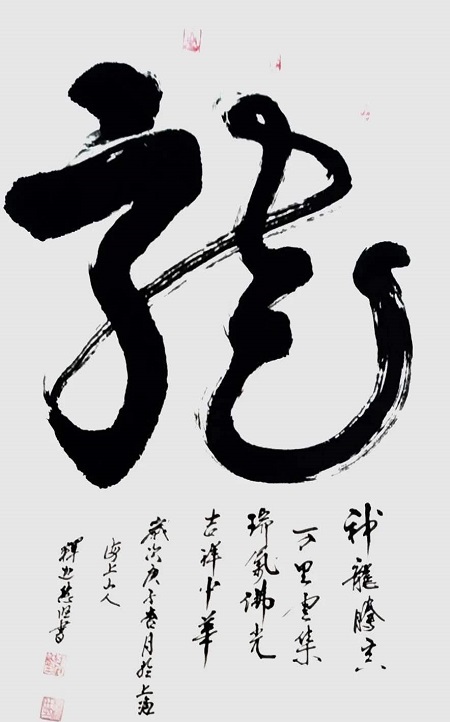 龍
神龍騰
万里雲集
瑞氣佛光
吉祥中華
歲次庚子春月於上海
海上山人
釋 書